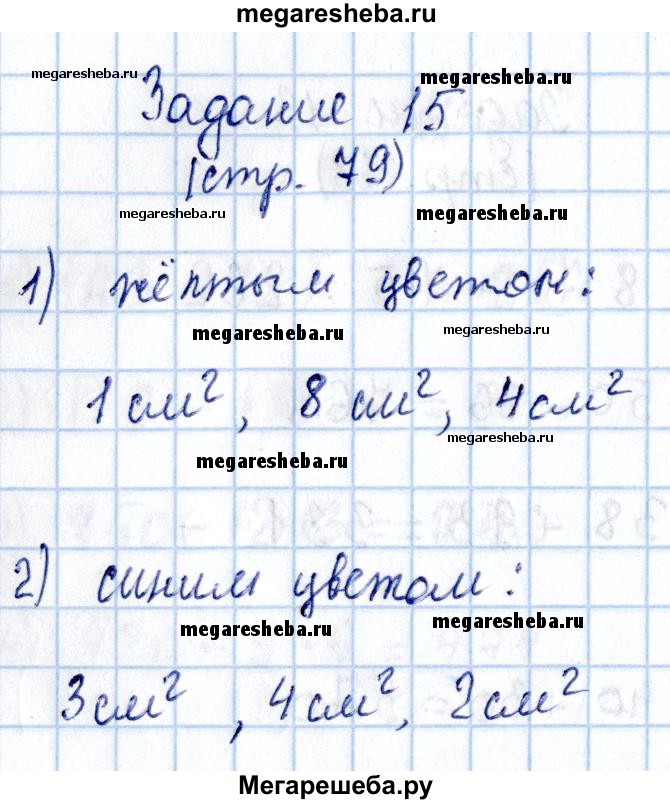 megaresheba.ru
megaresheba.ru megaresheba.ru
Задание 15
(стр. 79)
megaresheba.ru megaresheba.ru
1) жёлтым цветом:
megaresheba.ru megaresheba.ru
1 см², 8 см², 4 см²
megaresheba.ru
megaresheba.ru
2) синим цветом:
megaresheba.ru megaresheba.ru
3 см², 4 см², 2 см²
Мегарешеба.ру